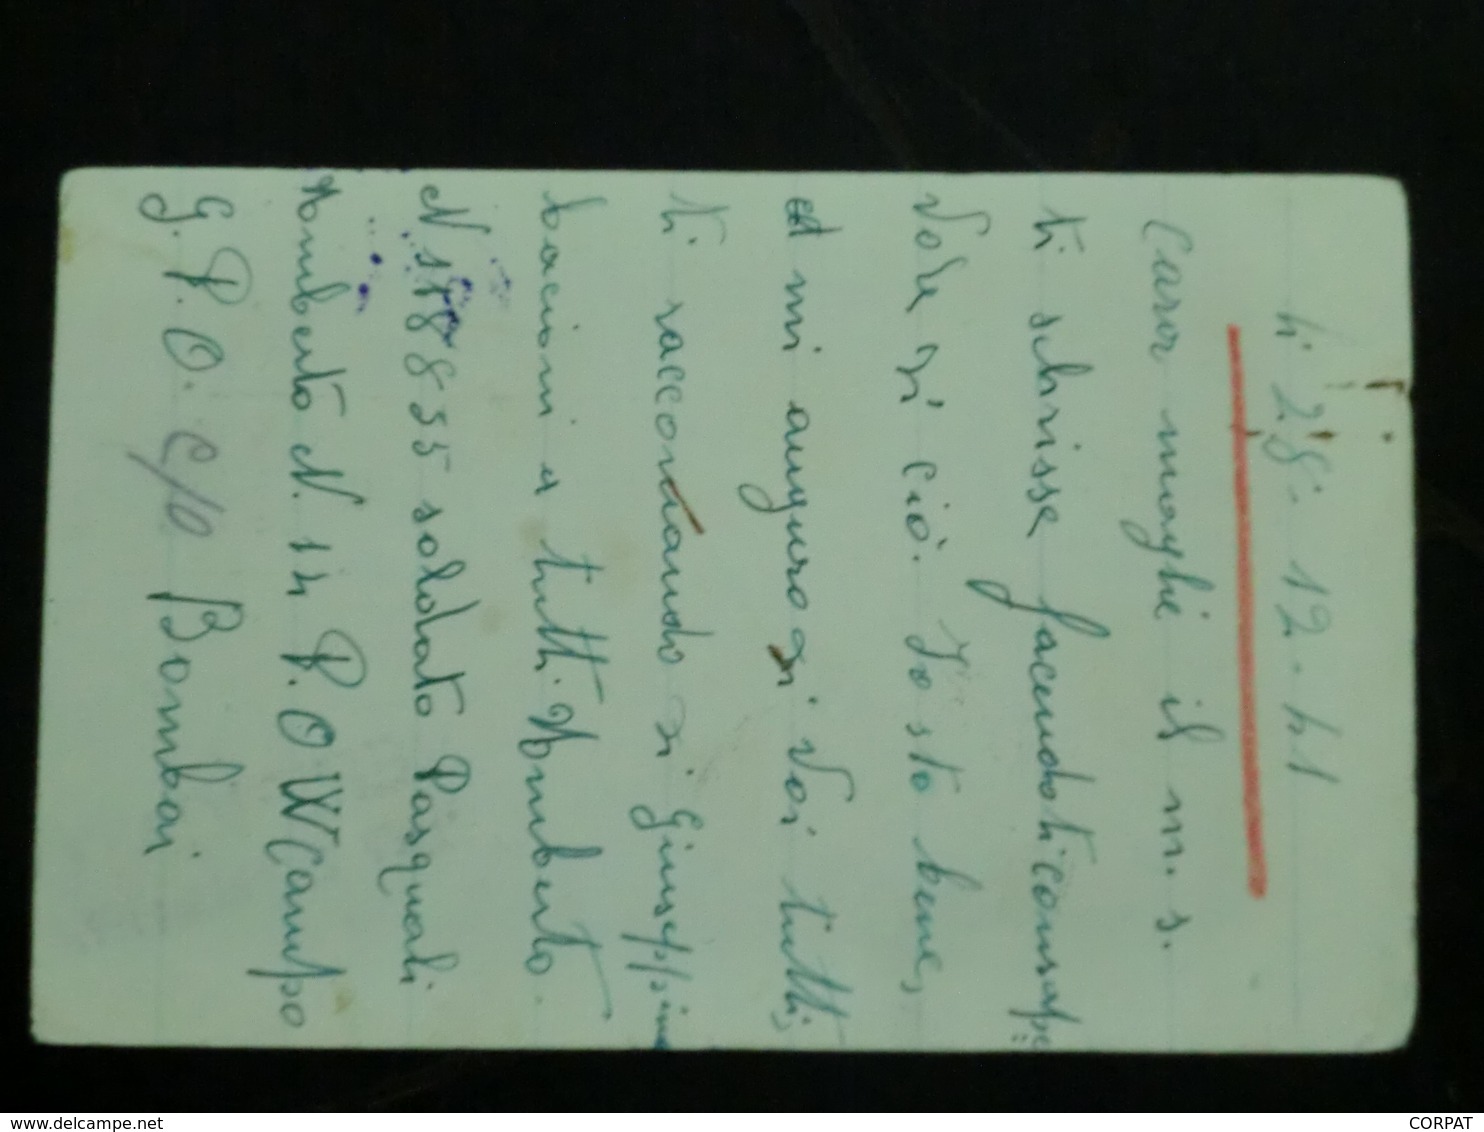 li 28. 12. 41
Caro moglie il m. s.
ti schrisse facendoti consape
vole di ciò. Io sto bene,
ed mi auguro di Voi tutti,
ti raccomando di Giuseppine
bacioni a tutti. Umberto.
N 188835 soldato Pasquali
Umberto N. 14 P.O.W Campo
G. P. O. c/o Bombai
CORPAT